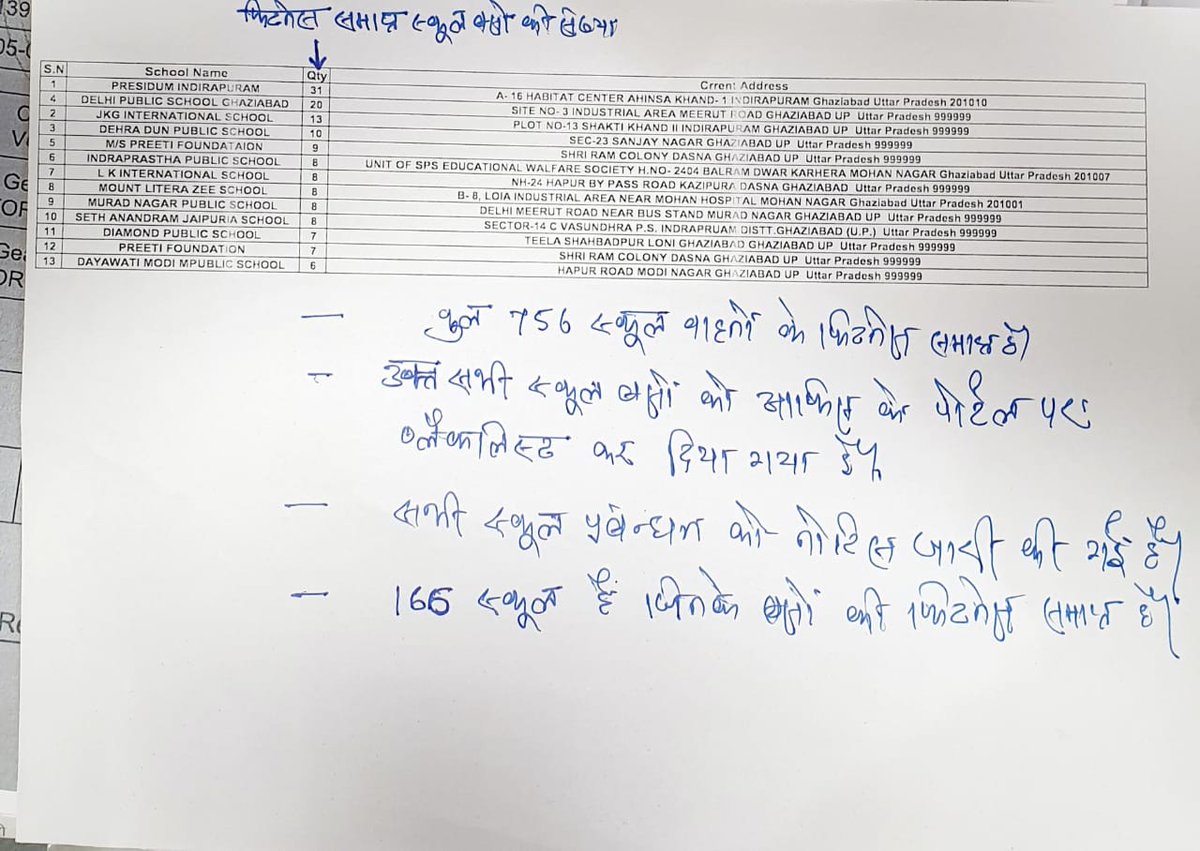 फिटनेस समाप्त स्कूल बसों की संख्या
S.N School Name Qty Crrent Address
1 PRESIDUM INDIRAPURAM 31 A- 16 HABITAT CENTER AHINSA KHAND- 1 INDIRAPURAM Ghaziabad Uttar Pradesh 201010
4 DELHI PUBLIC SCHOOL GHAZIABAD 20 SITE NO- 3 INDUSTRIAL AREA MEERUT ROAD GHAZIABAD UP Uttar Pradesh 999999
2 JKG INTERNATIONAL SCHOOL 13 PLOT NO-13 SHAKTI KHAND II INDIRAPURAM GHAZIABAD UP Uttar Pradesh 999999
3 DEHRA DUN PUBLIC SCHOOL 10 SEC-23 SANJAY NAGAR GHAZIABAD UP Uttar Pradesh 999999
5 M/S PREETI FOUNDATAION 9 SHRI RAM COLONY DASNA GHAZIABAD UP Uttar Pradesh 999999
6 INDRAPRASTHA PUBLIC SCHOOL 8 UNIT OF SPS EDUCATIONAL WALFARE SOCIETY H.NO- 2404 BALRAM DWAR KARHERA MOHAN NAGAR Ghaziabad Uttar Pradesh 201007
7 L K INTERNATIONAL SCHOOL 8 NH-24 HAPUR BY PASS ROAD KAZIPURA DASNA GHAZIABAD Uttar Pradesh 999999
8 MOUNT LITERA ZEE SCHOOL 8 B- 8, LOIA INDUSTRIAL AREA NEAR MOHAN HOSPITAL MOHAN NAGAR Ghaziabad Uttar Pradesh 201001
9 MURAD NAGAR PUBLIC SCHOOL 8 DELHI MEERUT ROAD NEAR BUS STAND MURAD NAGAR GHAZIABAD UP Uttar Pradesh 999999
10 SETH ANANDRAM JAIPURIA SCHOOL 8 SECTOR-14 C VASUNDHRA P.S. INDRAPRUAM DISTT.GHAZIABAD (U.P.) Uttar Pradesh 999999
11 DIAMOND PUBLIC SCHOOL 7 TEELA SHAHBADPUR LONI GHAZIABAD GHAZIABAD UP Uttar Pradesh 999999
12 PREETI FOUNDATION 7 SHRI RAM COLONY DASNA GHAZIABAD UP Uttar Pradesh 999999
13 DAYAWATI MODI MPUBLIC SCHOOL 6 HAPUR ROAD MODI NAGAR GHAZIABAD UP Uttar Pradesh 999999
— कुल 756 स्कूल वाहनों के फिटनेस समाप्त है।
— उक्त सभी स्कूल बसों को आफिस के पोर्टल पर
ब्लैकलिस्ट कर दिया गया है।
— सभी स्कूल प्रबन्धन को नोटिस जारी की गई है।
— 165 स्कूल हैं जिनके बसों की फिटनेस समाप्त है।